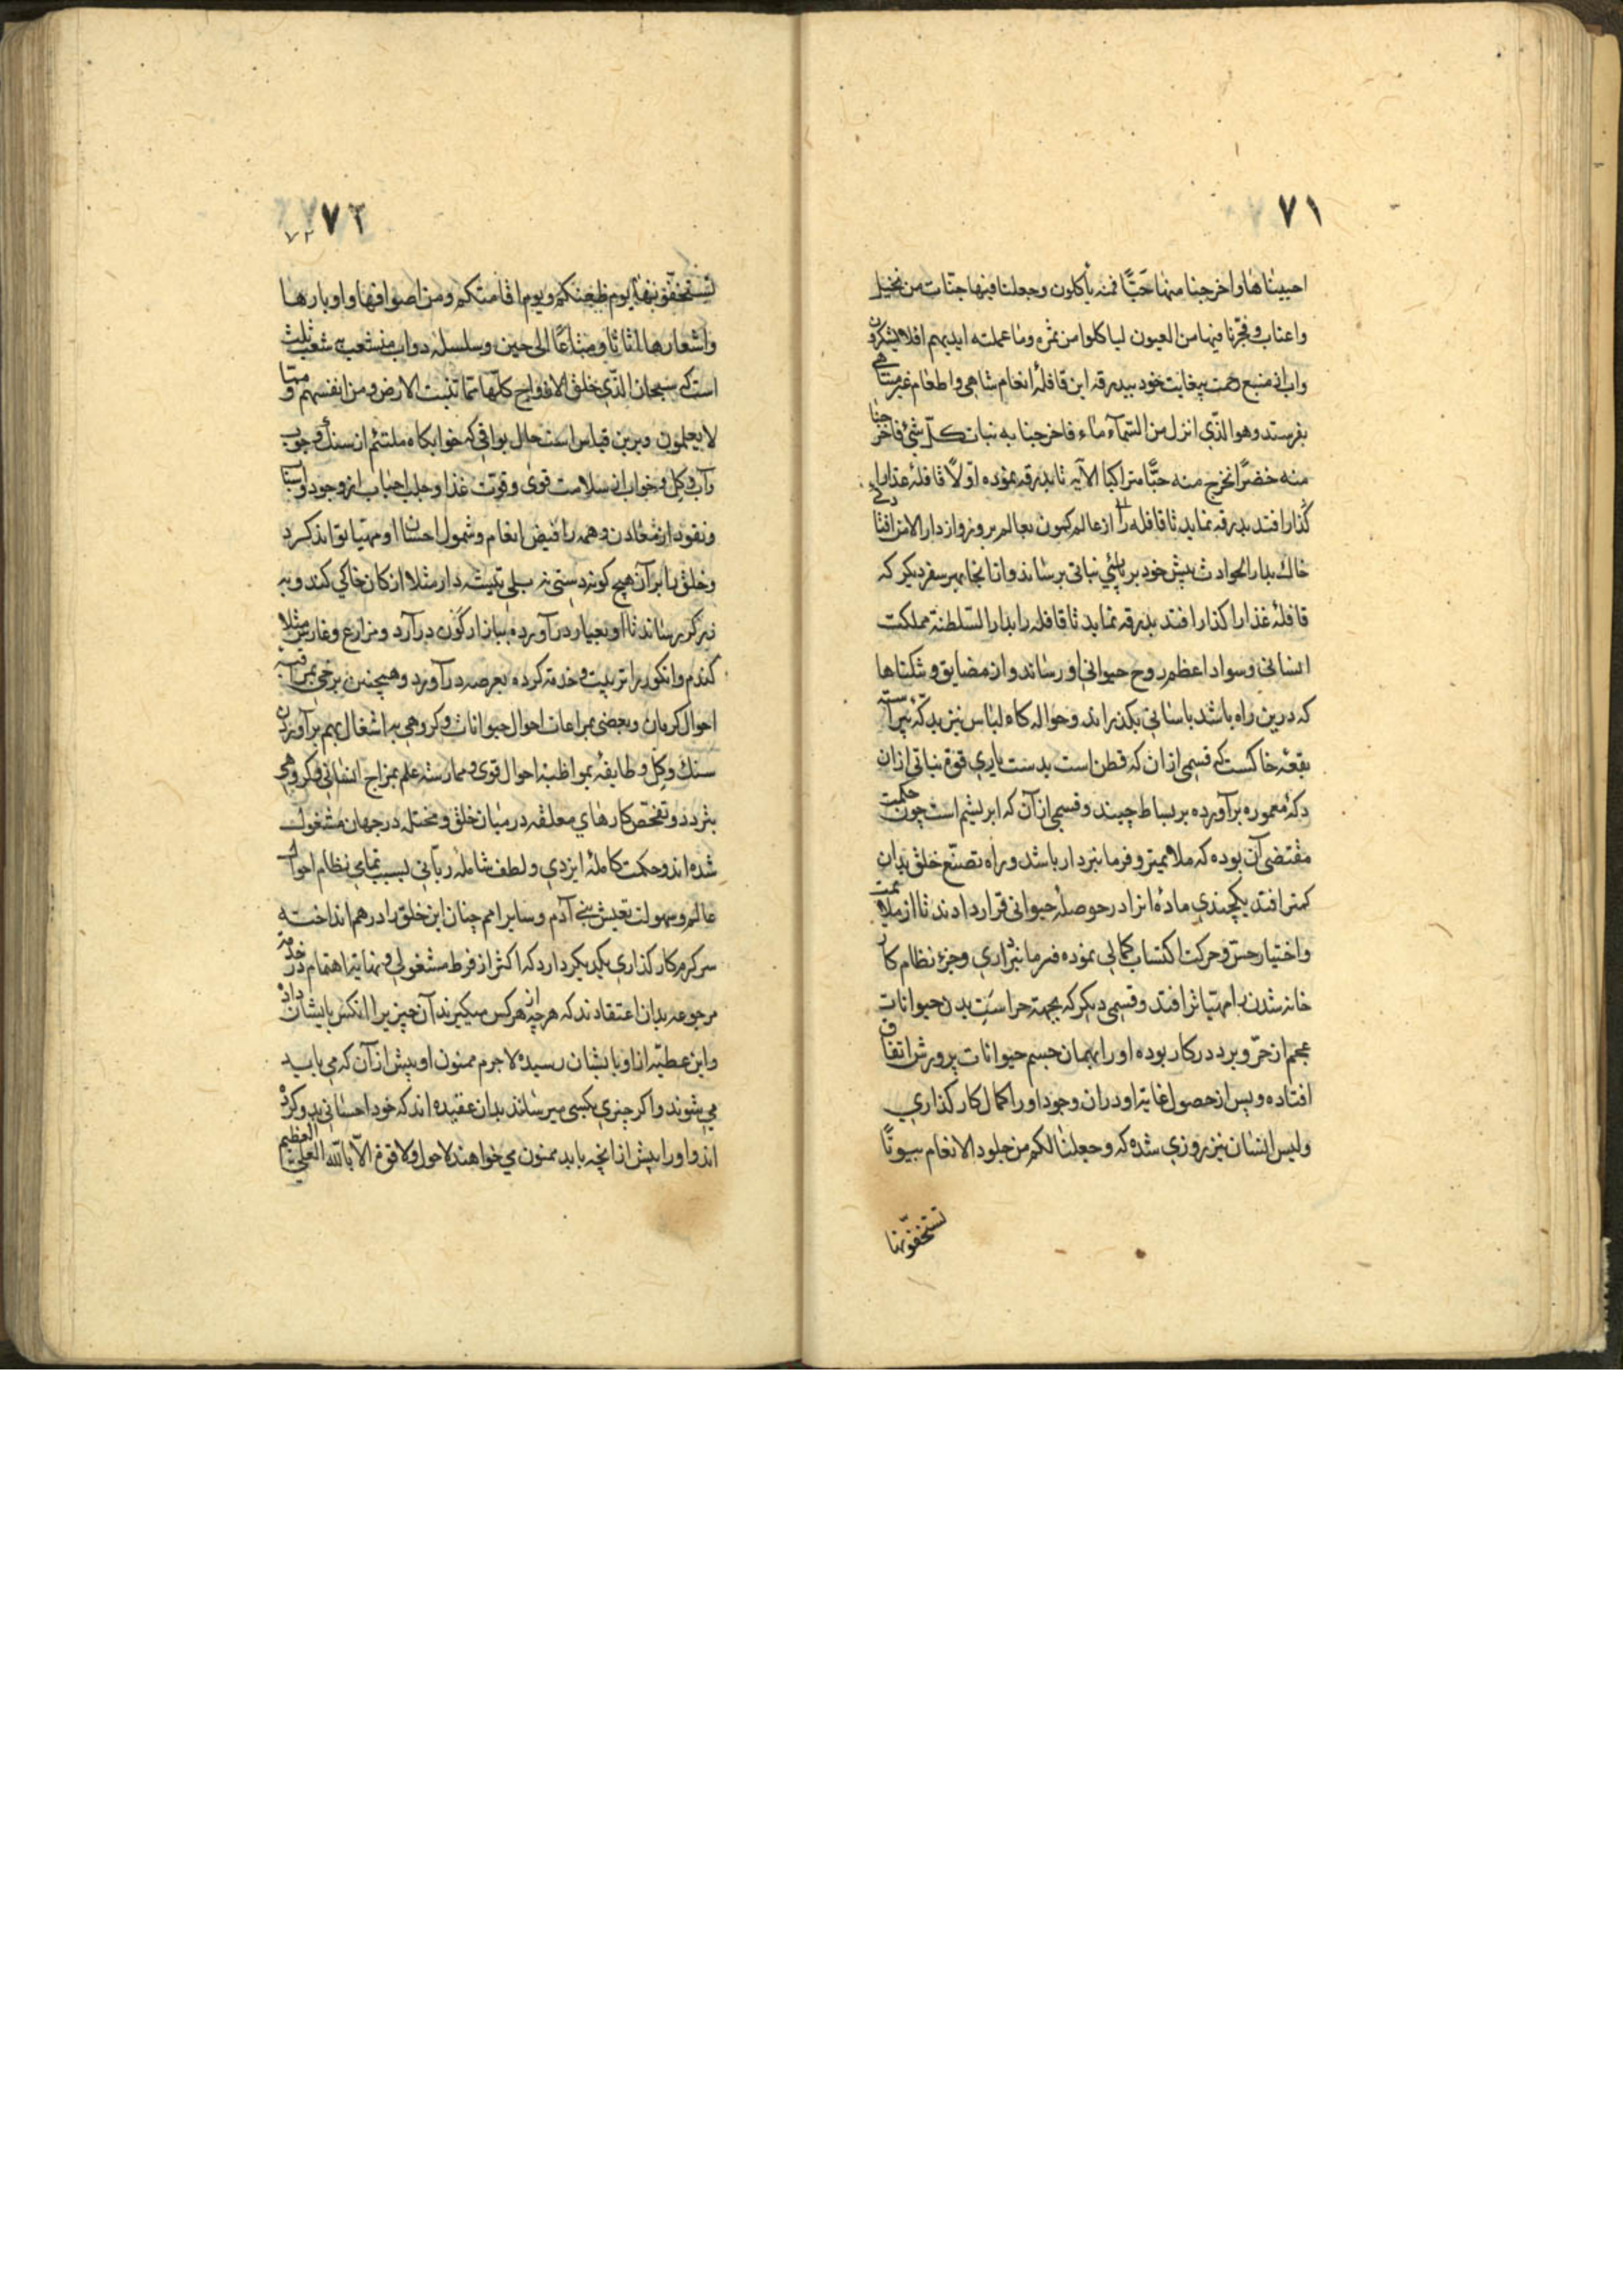 ۷۱
احییناها و اخرجنا منها حبًّا فمنه یأکلون و جعلنا فیها جنّات من نخیل
و اعناب و فجّرنا فیها من العیون لیاکلوا من ثمره و ما عملته ایدیهم افلا یشکرون
و اب از منبع رحمت بیغایت خود ببدرقه این قافلهٔ انعام شاهی و اطعام غیر متناهی
بفرستد و هو الذّی انزل من السّمآء ماء فاخرجنا به نبات کلّ شیٔ فاخرجنا
منه خضرًا نخرج منه حبًّا متراکبا الآیه تا بدرقه نموده اوّلاً قافلهٔ غذا را
گذار افتد بدرقه نماید تا قافله را از عالم کمون بعالم بروز و از دار الامن افتادکی
خاك بدار الحوادث پیش خود بر پائی نباتی برساند و از انجا بهر سفر دیکر که
قافلهٔ غذا را کذار افتد بدرقه نماید تا قافله را بدار السّلطنة مملکت
انسانی و سواد اعظم روح حیوانی او رساند و از مضایق و تنکناها
که درین راه باشد باسانی بکذراند و حواله کاه لباس نیز بدکّه پیراسته
بقعهٔ خاکست که قسمی ازان که قطن است بدست یاری قوّة نباتی ازان
دکهٔ معموره برآورده بر بساط چیند و قسمی از آن که ابریشم است چون حکمت
مقتضی آن بوده که ملایمتر و فرمانبردار باشد و راه تصنّع خلق بدان
کمتر افتد یکچندی مادهٔ انرا در حوصلهٔ حیوانی قرار دادند تا از ملایمت
و اختیار حسّ و حرکت اکتساب کمالی نموده فرمانبرداری و جزء نظام کار
خانه شدن را مهیّاتر افتد و قسمی دیکر که بجهة حراست بدن حیوانات
عجم از حرّ و برد در کار بوده او را بهمان جسم حیوانات پرورش اتفاق
افتاده و پس از حصول غایة او دران وجود او را کمال کار کذاری
و لبس انسان نیز روزی شده که و جعلنا لکم من جلود الانعام بیوتًا
تستخفّونها
۷۲
۷۲
تستخفّونها یوم ظعنکم و یوم اقامتکم و من اصوافها و اوبارها
و اشعارها اثاثا و متاعًا الی حین و سلسلهٔ دواب منشعب به شعب ثلث
است که سبحان الذّی خلق الازواج کلّها ممّا تنبت الارض و من انفسهم و ممّا
لا یعلمون و برین قیاس است حال بواقی که خوابکاه ملتئم از سنك و چوب
و آب و کل و خواب از سلامت قوی و قوّت غذا و جلب احباب از وجود و اسباب
و نقود از معادن و همه را فیض انعام و شمول احسان او مهیّا تواند کرد
و خلق را بر آن هیچ کونه دستی نه بلی تیشه دار مثلا از کان خاکی کند و به
زرکر رساند تا او بعیار در آورده ببازار کون در آرد و مزارع و غارس مثلا
کندم و انکور را تربیت و خدمة کرده بعرصه در آورد و همچنین برخی بمراقبة
احوال کرمان و بعضی بمراعات احوال حیوانات و کروهی به اشغال بهم برآوردن
سنك و کل و طایفهٔ بمواظبة احوال قوی و ممارسة علم بمزاج انسانی و کروهی
بتردد و تفحّص کارهای معلقه در میان خلق و مختله در جهان مشغول
شده اند و حکمت کاملهٔ ایزدی و لطف شاملهٔ ربّانی لسبب تمامی نظام احوال
عالم و سهولت تعیش بنی آدم و سایر امم چنان این خلق را در هم انداخته
سرکرم کار کذاری یکدیکر دارد که اکثر از فرط مشغولی و نهایة اهتمام در خدمة
مرجوعه بدان اعتقادند که هر چه از هر کس میکیرند آن چیز را انکس بایشان داده
و این عطیّه از او بایشان رسیده لاجرم ممنون او بیش از آن که می باید
می شوند و اکر چیزی بکسی میرسانند بدان عقیده اند که خود احسانی بدو کرده
اند و او را بیش از انچه باید ممنون می خواهند لا حول و لا قوّة الّا باللّه العلیّ العظیم